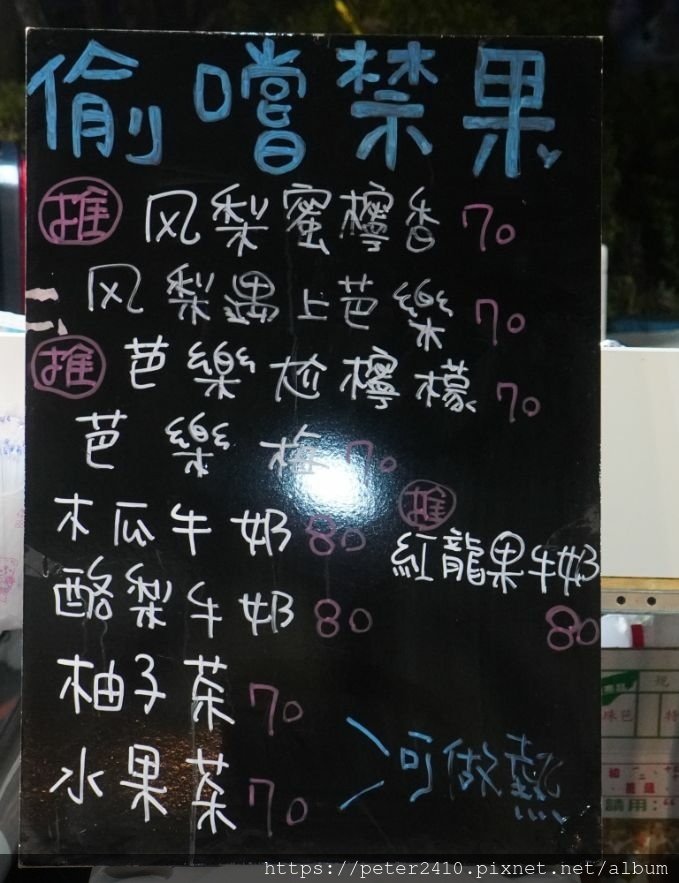 偷嚐禁果
推 风梨蜜檸香 70
风梨遇上芭樂 70
推 芭樂尬檸檬 70
芭樂梅 70
木瓜牛奶 80
推
紅龍果牛奶
80
酪梨牛奶 80
柚子茶 70
水果茶 70
可做熱
https://peter2410.pixnet.net/album